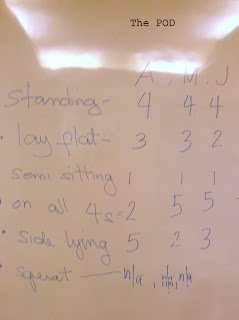 The POD
A, M, J
Standing - 4 4 4
• lay flat - 3 3 2
semi sitting 1 1 1
• on all 4s = 2 5 5
• side lying 5 2 3
• squat — n/a, n/a, n/a